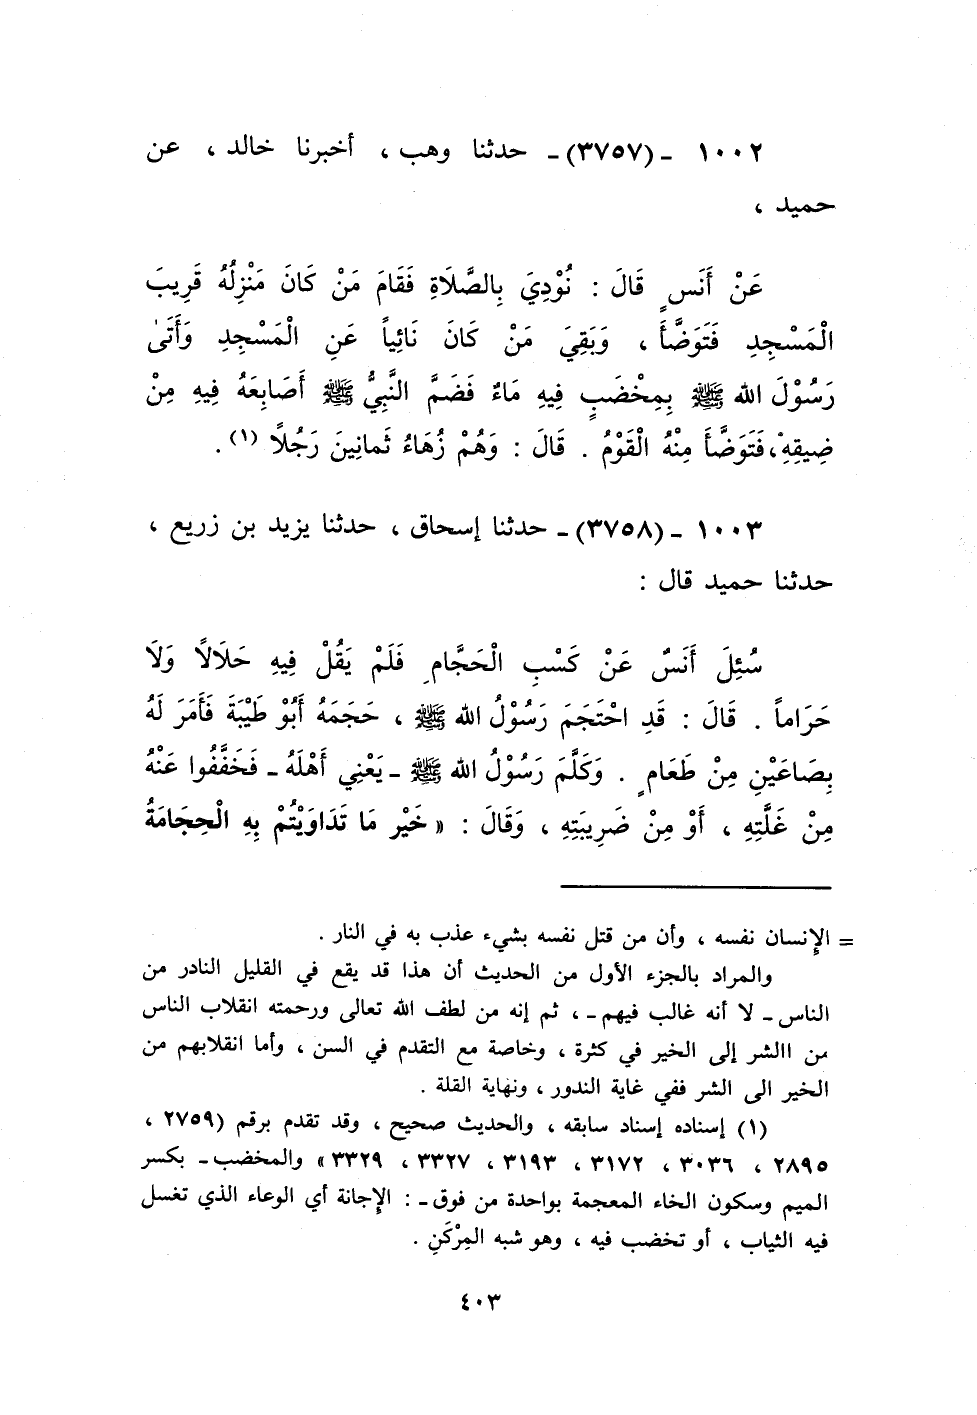 ١٠٠٢ ـ (٣٧٥٧) ـ حدثنا وهب ، أخبرنا خالد ، عن
حميد ،
عَنْ أَنَسٍ قَالَ : نُوْدِيَ بِالصَّلَاةِ فَقَامَ مَنْ كَانَ مَنْزِلُهُ قَرِيبَ
الْمَسْجِدِ فَتَوَضَّأَ ، وَبَقِيَ مَنْ كَانَ نَائِياً عَنِ الْمَسْجِدِ وَأَتَىٰ
رَسُوْلَ الله ﷺ بِمِخْضَبٍ فِيهِ مَاءٌ فَضَمَّ النَّبِيُّ ﷺ أَصَابِعَهُ فِيهِ مِنْ
ضِيقِهِ، فَتَوَضَّأَ مِنْهُ الْقَوْمُ . قَالَ : وَهُمْ زُهَاءُ ثَمانِينَ رَجُلاً (١) .
١٠٠٣ ـ (٣٧٥٨) ـ حدثنا إسحاق ، حدثنا يزيد بن زريع ،
حدثنا حميد قال :
سُئِلَ أَنَسٌ عَنْ كَسْبِ الْحَجَّامِ فَلَمْ يَقُلْ فِيهِ حَلَالاً وَلَا
حَرَاماً . قَالَ : قَدِ احْتَجَمَ رَسُوْلُ الله ﷺ ، حَجَمَهُ أَبُوْ طَيْبَةَ فَأَمَرَ لَهُ
بِصَاعَيْنِ مِنْ طَعَامٍ . وَكَلَّمَ رَسُوْلُ الله ﷺ ـ يَعْنِي أَهْلَهُ ـ فَخَفَّفُوا عَنْهُ
مِنْ غَلَّتِهِ ، أَوْ مِنْ ضَرِيبَتِهِ ، وَقَالَ : « خَيْر مَا تَدَاوَيْتُمْ بِهِ الْحِجَامَةُ
= الإِنسان نفسه ، وأن من قتل نفسه بشيء عذب به في النار .
والمراد بالجزء الأول من الحديث أن هذا قد يقع في القليل النادر من
الناس ـ لا أنه غالب فيهم ـ ، ثم إنه من لطف الله تعالى ورحمته انقلاب الناس
من االشر إلى الخير في كثرة ، وخاصة مع التقدم في السن ، وأما انقلابهم من
الخير الى الشر ففي غاية الندور ، ونهاية القلة .
(١) إسناده إسناد سابقه ، والحديث صحيح ، وقد تقدم برقم (٢٧٥٩ ،
٢٨٩٥ ، ٣٠٣٦ ، ٣١٧٢ ، ٣١٩٣ ، ٣٣٢٧ ، ٣٣٢٩» والمخضب ـ بكسر
الميم وسكون الخاء المعجمة بواحدة من فوق ـ : الإِجانة أي الوعاء الذي تغسل
فيه الثياب ، أو تخضب فيه ، وهو شبه المِرْكَنِ .
٤٠٣